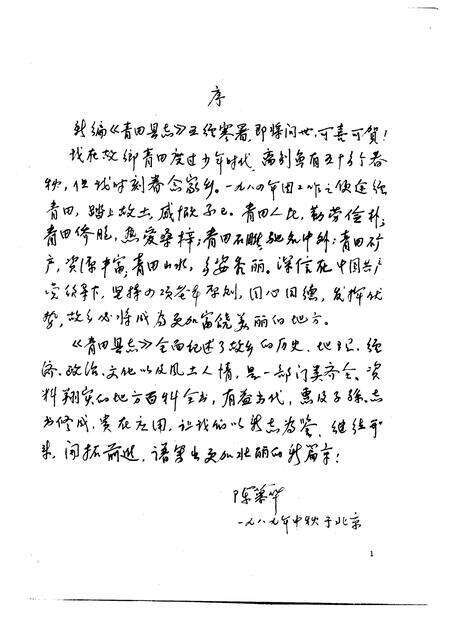 序
新编《青田县志》五经寒暑,即将问世,可喜可贺!
我在故乡青田度过少年时代,离别虽有五十多个春
秋,但我时刻眷念家乡。一九八四年因工作之便途经
青田,踏上故土,感慨不已。青田人民,勤劳俭朴;
青田侨胞,热爱桑梓;青田石雕驰名中外;青田矿
产,资源丰富;青田山水,多姿秀丽。深信在中国共产
党领导下,坚持四项基本原则,同心同德,发挥优
势,故乡必将成为更加富饶美丽的地方。
《青田县志》全面记述了故乡的历史、地理、经
济、政治、文化以及风土人情,是一部门类齐全、资
料翔实的地方百科全书,有益当代,惠及子孙。志
书修成,贵在应用,让我们以新志为鉴,继往开
来,开拓前进,谱写出更加壮丽的新篇章!
陈慕华
一九八九年中秋于北京
1